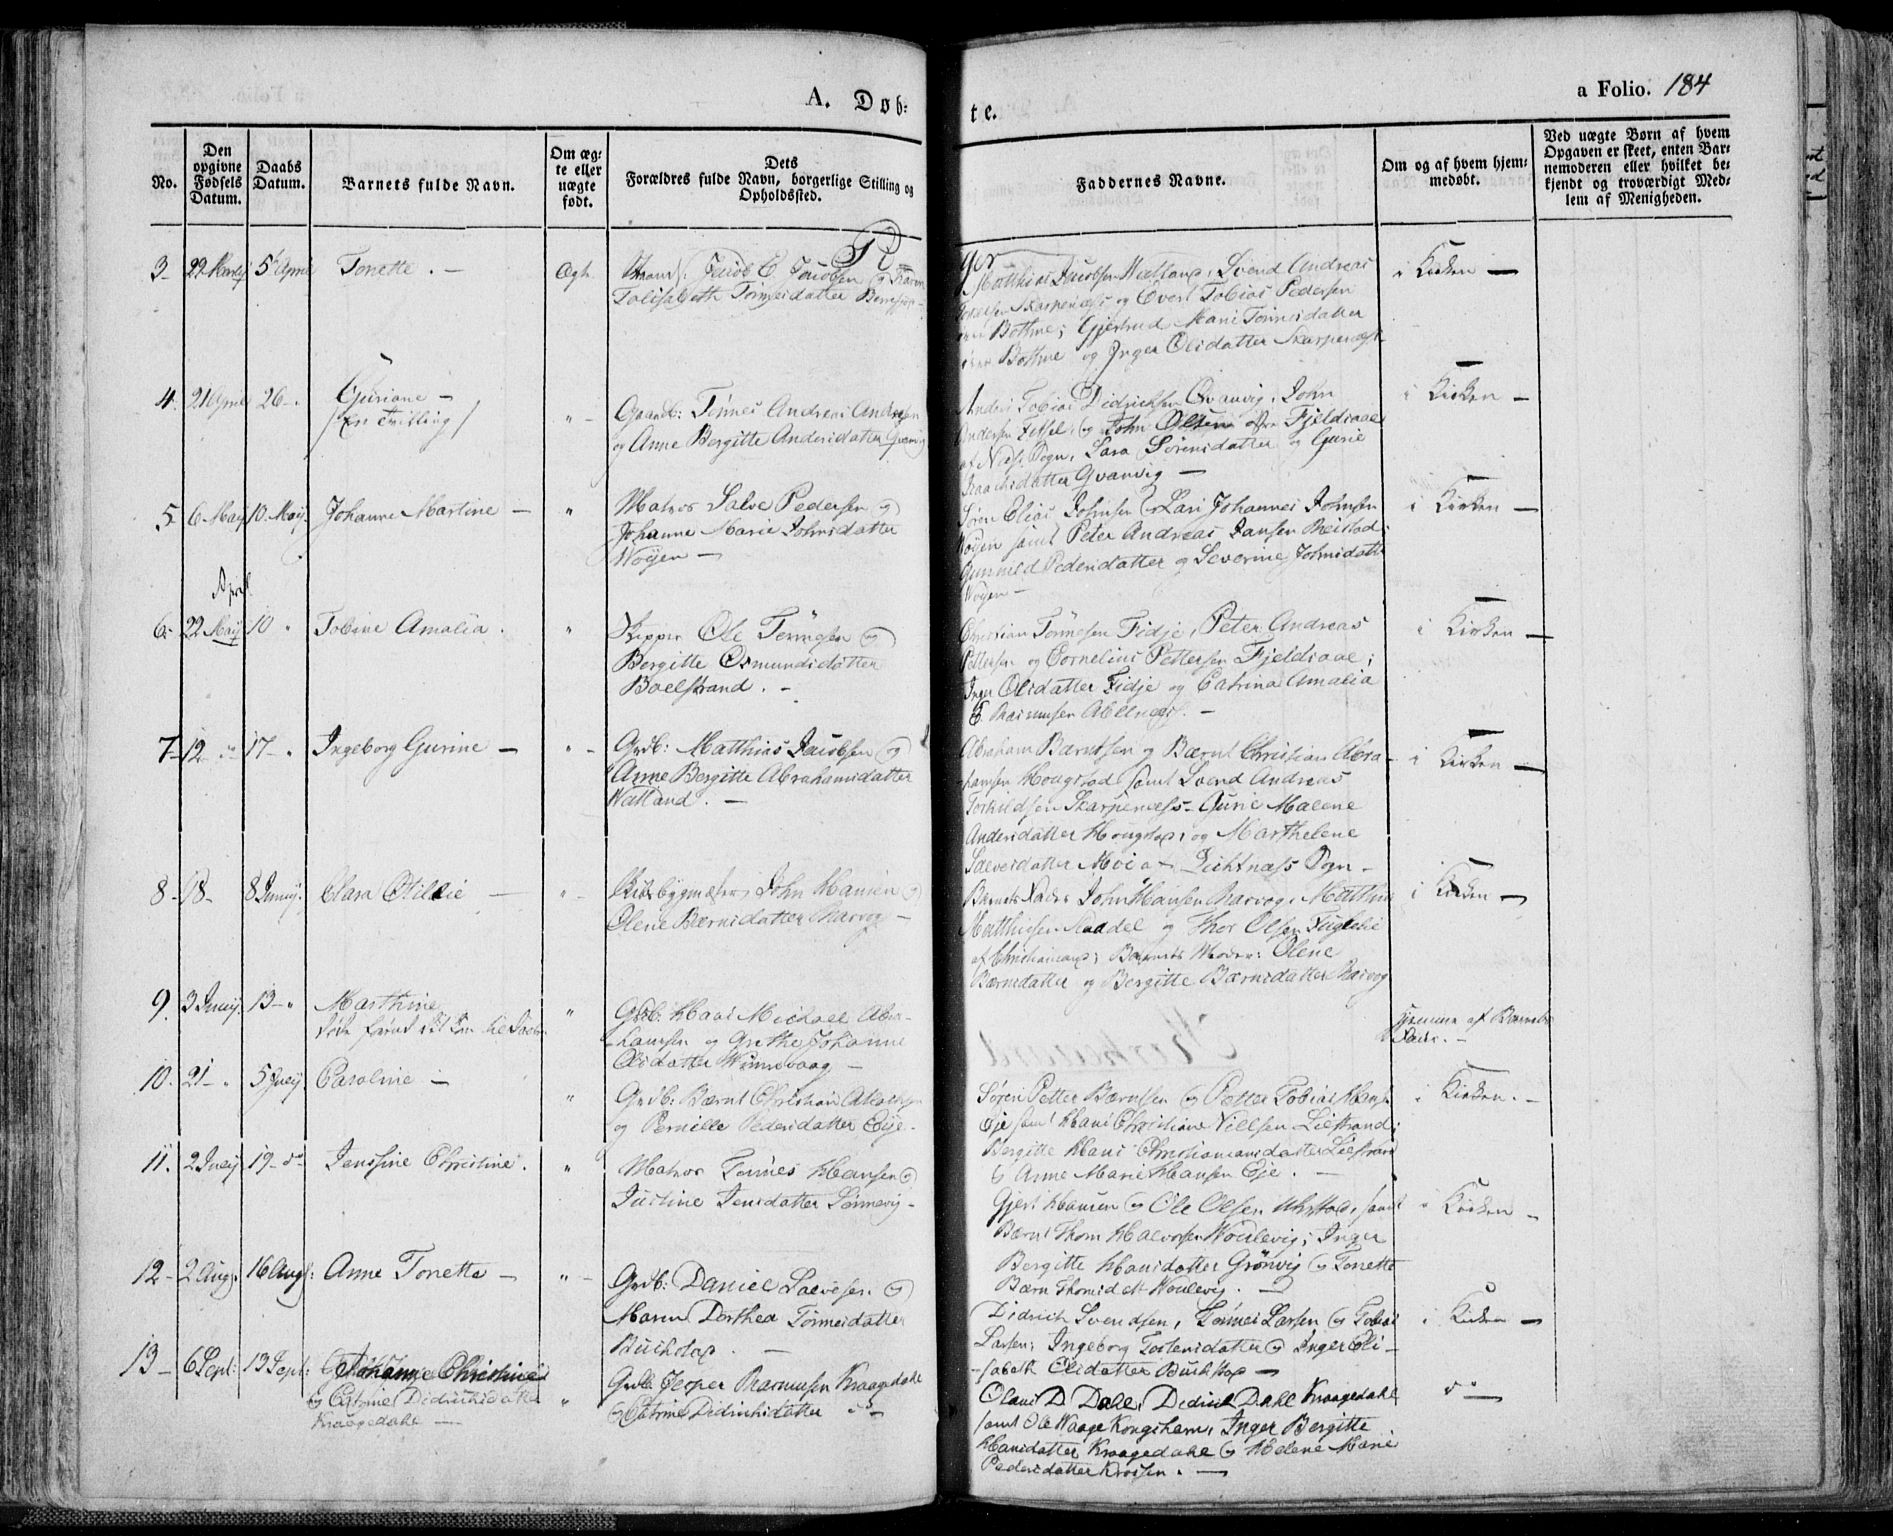 A. Døb-
te.
a Folio. 184
No.
Den opgivne Fødsels Datum.
Daabs Datum.
Barnets fulde Navn.
Om ægte eller uægte født.
Dets Forældres fulde Navn, borgerlige Stilling og Opholdssted.
Faddernes Navne.
Om og af hvem hjemmedøbt.
Ved uægte Børn af hvem Opgaven er skeet, enten Barnemoderen eller hvilket bekjendt og troværdigt Medlem af Menigheden.
3 22 5 April Tonette. Ægt.
Jacob C. Jacobsen og Karen
Tønnesdatter
Matthias Jacobsen Watland, Svend Andreas
Skarpenæss og Evert Tobias Pedersen
Bothne; Gjertrud Marie Tønnesdatter
Bothne og Inger Olsdatter Skarpenæss
i Kirken
4. 21 April 26 Guriane
/En Tvilling/
Gaardb: Tønnes Andreas Andersen
og Anne Bergitte Andersdatter
Anders Tobias Didricksen Qvanvig, John
Andersen og John Olsen Fjeldsaae
af Næs Sogn, Sara Sørensdatter og Gurie
Isaachsdatter Qvanvig
i Kirken
5 6 May 10. May Johanne Martine
Matros Salve Pedersen og
Johanne Marie Johnsdatter
Wøyen
Søren Elias Johnsen, Lars Johannes Johnsen
Wøyen samt Peter Andreas Hansen
Gunnild Pedersdatter og Severine Johnsdatter
Wøyen
i Kirken
April
6. 22 May 10 Tobine Amalia.
Skipper Ole Tønnesen og
Bergitte Osmundsdatter
Boelstrand.
Christian Tønnesen Fidje, Peter Andreas
Pettersen og Cornelius Pettersen Fjeldsaae;
Inger Olsdatter Fidje og Catrina Amalia
C. Rasmusen Abelnæs.
i Kirken
7 12 17 Ingeborg Gurine
Grdb: Matthias Jacobsen og
Anne Bergitte Abrahamsdatter
Watland.
Abraham Bærntsen og Bærnt Christian Abra-
hamsen Hougstad samt Svend Andreas
Torkildsen Skarpenæss, Gurie Malene
Andersdatter Hougstad, og Marthelene
Salvesdatter Moi Sogn
i Kirken
8 18 8 Juny. Clara Otillie
Skibsbygmester John Hansen og
Olene Bærnsdatter Rarvog
Barnets Fader John Hansen Rarvog, Matthias
Matthiesen og Thor Olsen
af Christiansand; Barnets Moder: Olene
Bærnsdatter og Bergitte Bærnsdatter Rarvog
i Kirken
9. 3 Juny. 13 Marthine
døde førend det kom til Daaben
Grdb. Hans Michael Abra-
hamsen og Grethe Johanne
Olsdatter
Hjemme af Barnets
Fader.
10. 21 5 July Caroline
Grdb: Bærnt Christian
og Pernille Pedersdatter Eije.
Søren Petter Bærntsen og Petter Tobias Hans.
Eje samt Hans Christian Nielsen Liestrand,
Bergitte Hans Christiansdatter Liestrand
og Anne Marie Hansen Eje.
i Kirken.
11. 2 July 19 do Jensine Christine.
Matros Tønnes Hansen og
Justine Jensdatter Sønnevig
Gjert Hansen og Ole Olsen samt
Bærnt Thom Halvorsen Woulevig; Inger
Bergitte Hansdatter Grønvig og Tonette
Bærn Thomsdatt. Woulevig.
i Kirken
12 2 Aug. 16 Aug: Anne Tonette
Grdb: Daniel Salvesen og
Maren Dorthea Tønnesdatter
Buckstad.
Didrich Svendsen, Tønnes Larsen og Tobias
Larsen; Ingeborg Torkensdatter og Inger Eli-
sabeth Olsdatter Buckstad
i Kirken
13 6 Sept: 13 Sept: Johanne Christine
og Catrine Didrichsdatter
Kraagedahl
Grdb. Jesper Rasmusen Kraagedahl
og Catrine Didrichsdatter do
Olaus D. Dahl, Didrich Dahl Kraagedahl
samt Ole Waage Kongshavn, Inger Bergitte
Hansdatter Kraagedahl og Helene Marie
Pedersdatter Krossen.
do